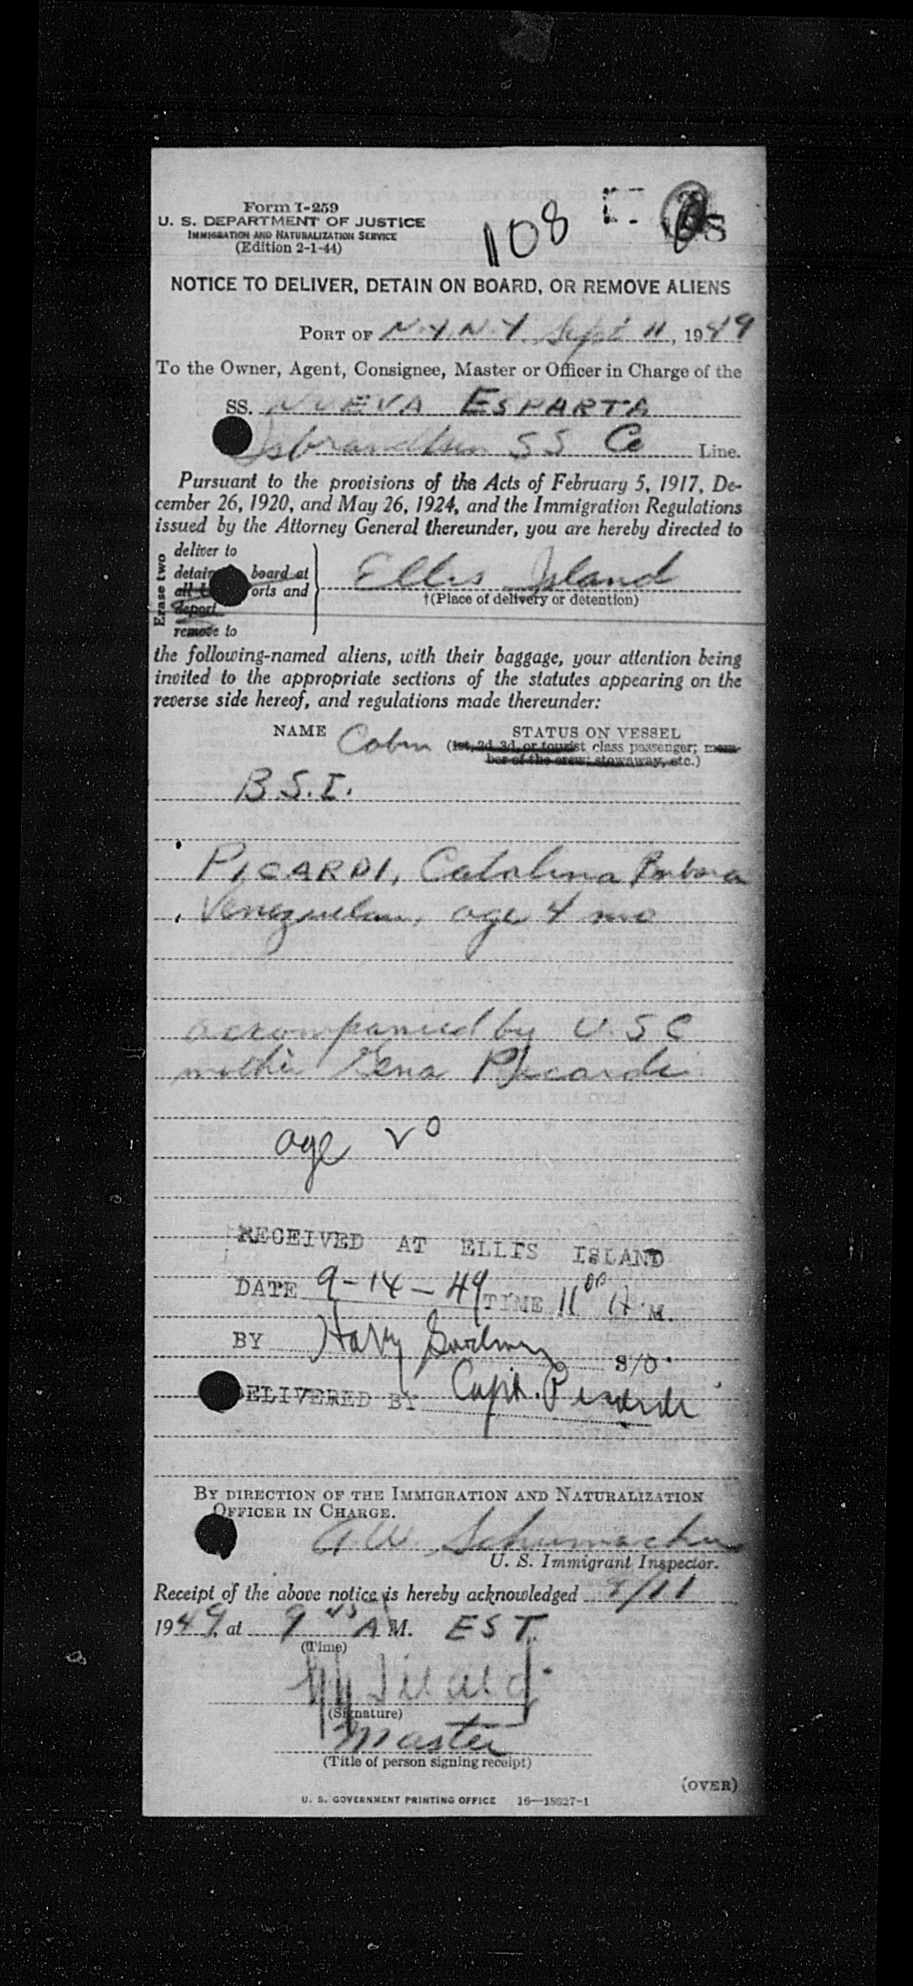 Form I-259
U. S. DEPARTMENT OF JUSTICE
IMMIGRATION AND NATURALIZATION SERVICE
(Edition 2-1-44)
108
NOTICE TO DELIVER, DETAIN ON BOARD, OR REMOVE ALIENS
PORT OF N.Y. N.Y. Sept 11, 1949
To the Owner, Agent, Consignee, Master or Officer in Charge of the
SS. NUEVA ESPARTA
Isbrandtsen SS Co Line.
Pursuant to the provisions of the Acts of February 5, 1917, De-
cember 26, 1920, and May 26, 1924, and the Immigration Regulations
issued by the Attorney General thereunder, you are hereby directed to
Erase two
deliver to
detain board at
all orts and
deport
remove to
Ellis Island
†(Place of delivery or detention)
the following-named aliens, with their baggage, your attention being
invited to the appropriate sections of the statutes appearing on the
reverse side hereof, and regulations made thereunder:
NAME Cabin STATUS ON VESSEL
(1st, 2d, 3d, or tourist class passenger; mem-
ber of the crew; stowaway, etc.)
B.S.I.
PICARDI, Catalina Barbara
Venezuelan, age 4 mo
accompanied by U S C
mother Gena Picardi
age 20
RECEIVED AT ELLIS ISLAND
DATE 9-14-49 TIME 11 00 A M.
BY Harry S/O
ELIVERED BY Capt.
BY DIRECTION OF THE IMMIGRATION AND NATURALIZATION
OFFICER IN CHARGE.
A W Schumacher
U. S. Immigrant Inspector.
Receipt of the above notice is hereby acknowledged 9/11
1949, at 9 45 A M. EST
(Time)
(Signature)
Master
(Title of person signing receipt)
(OVER)
U. S. GOVERNMENT PRINTING OFFICE 16—18627-1